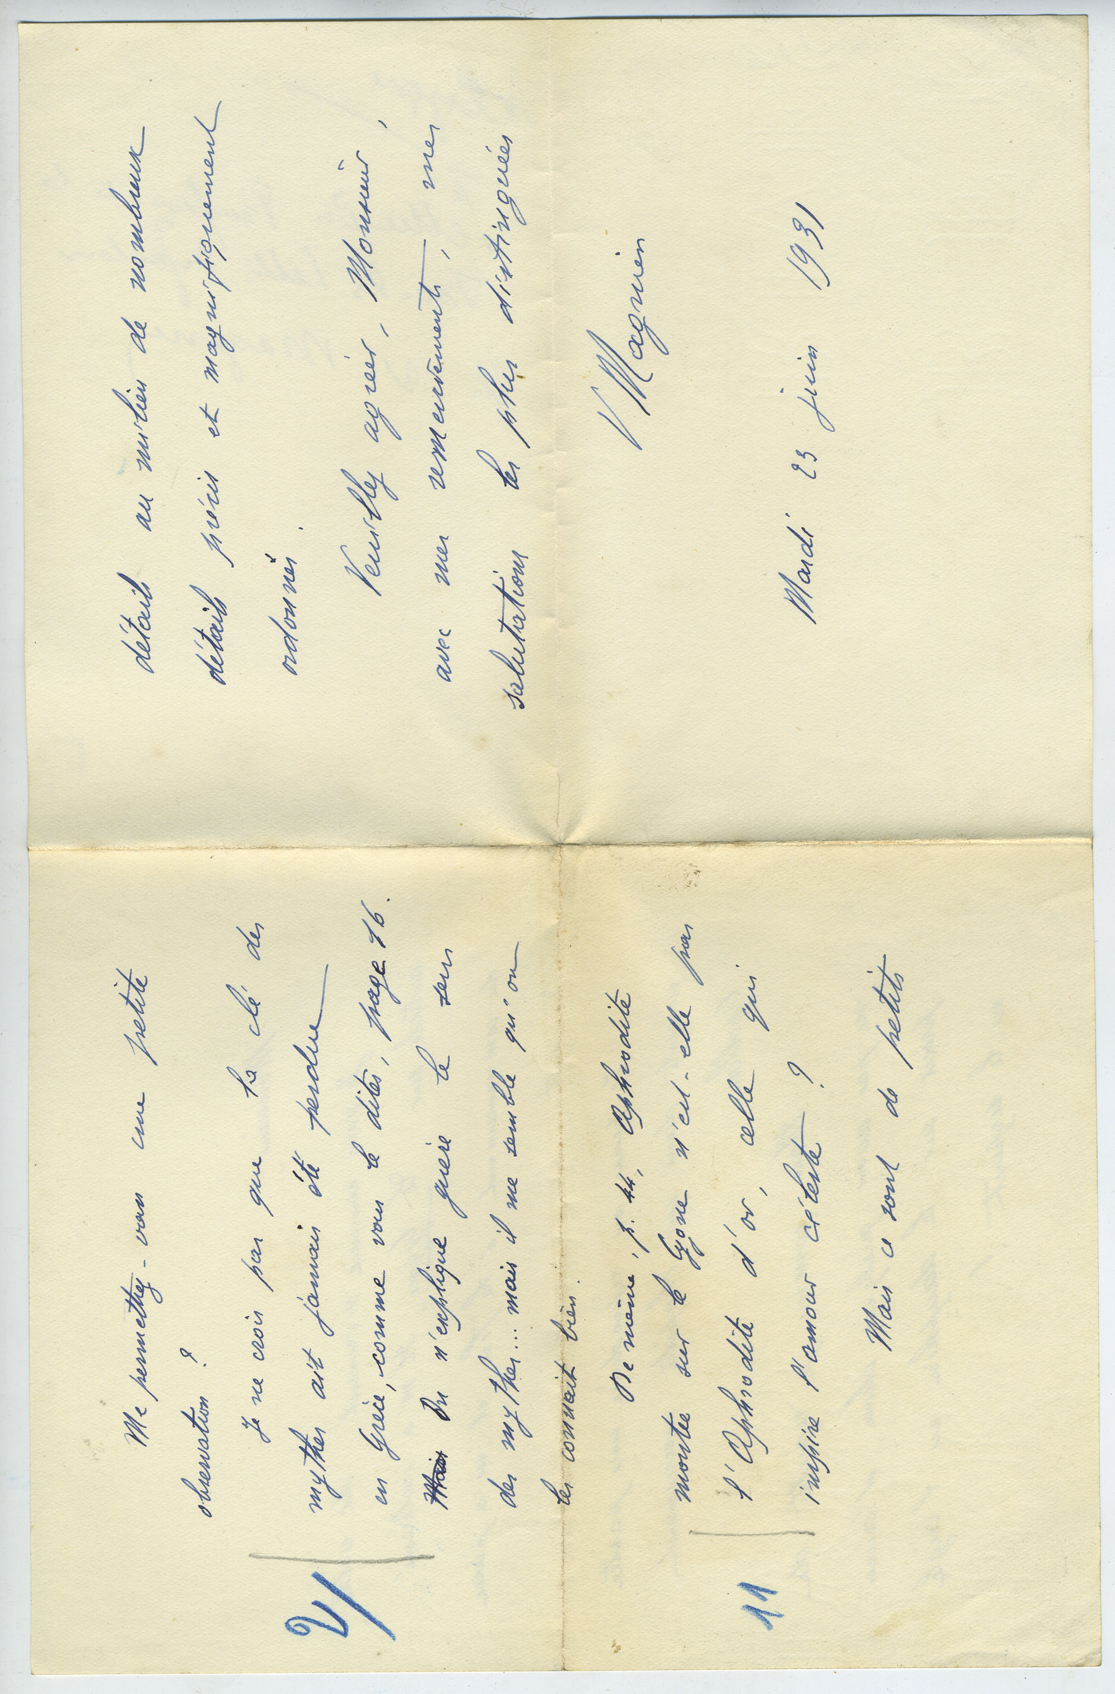 Me permettez-vous une petite
observation ?
Je ne crois pas que la clé des
mythes ait jamais été perdue
en Grèce, comme vous le dites, page 76.
Mais On n'explique guère le sens
des mythes... mais il me semble qu'on
les connait bien.
De même, p. 44, Aphrodite
montée sur le Cygne n'est-elle pas
l'Aphrodite d'or, celle qui
inspire l'amour céleste ?
Mais ce sont de petits
2/
11
détails au milieu de nombreux
détails précis et magnifiquement
ordonnés.
Veuillez agréer, Monsieur,
avec mes remerciements, mes
salutations les plus distinguées
V Magnien
Mardi 23 juin 1931